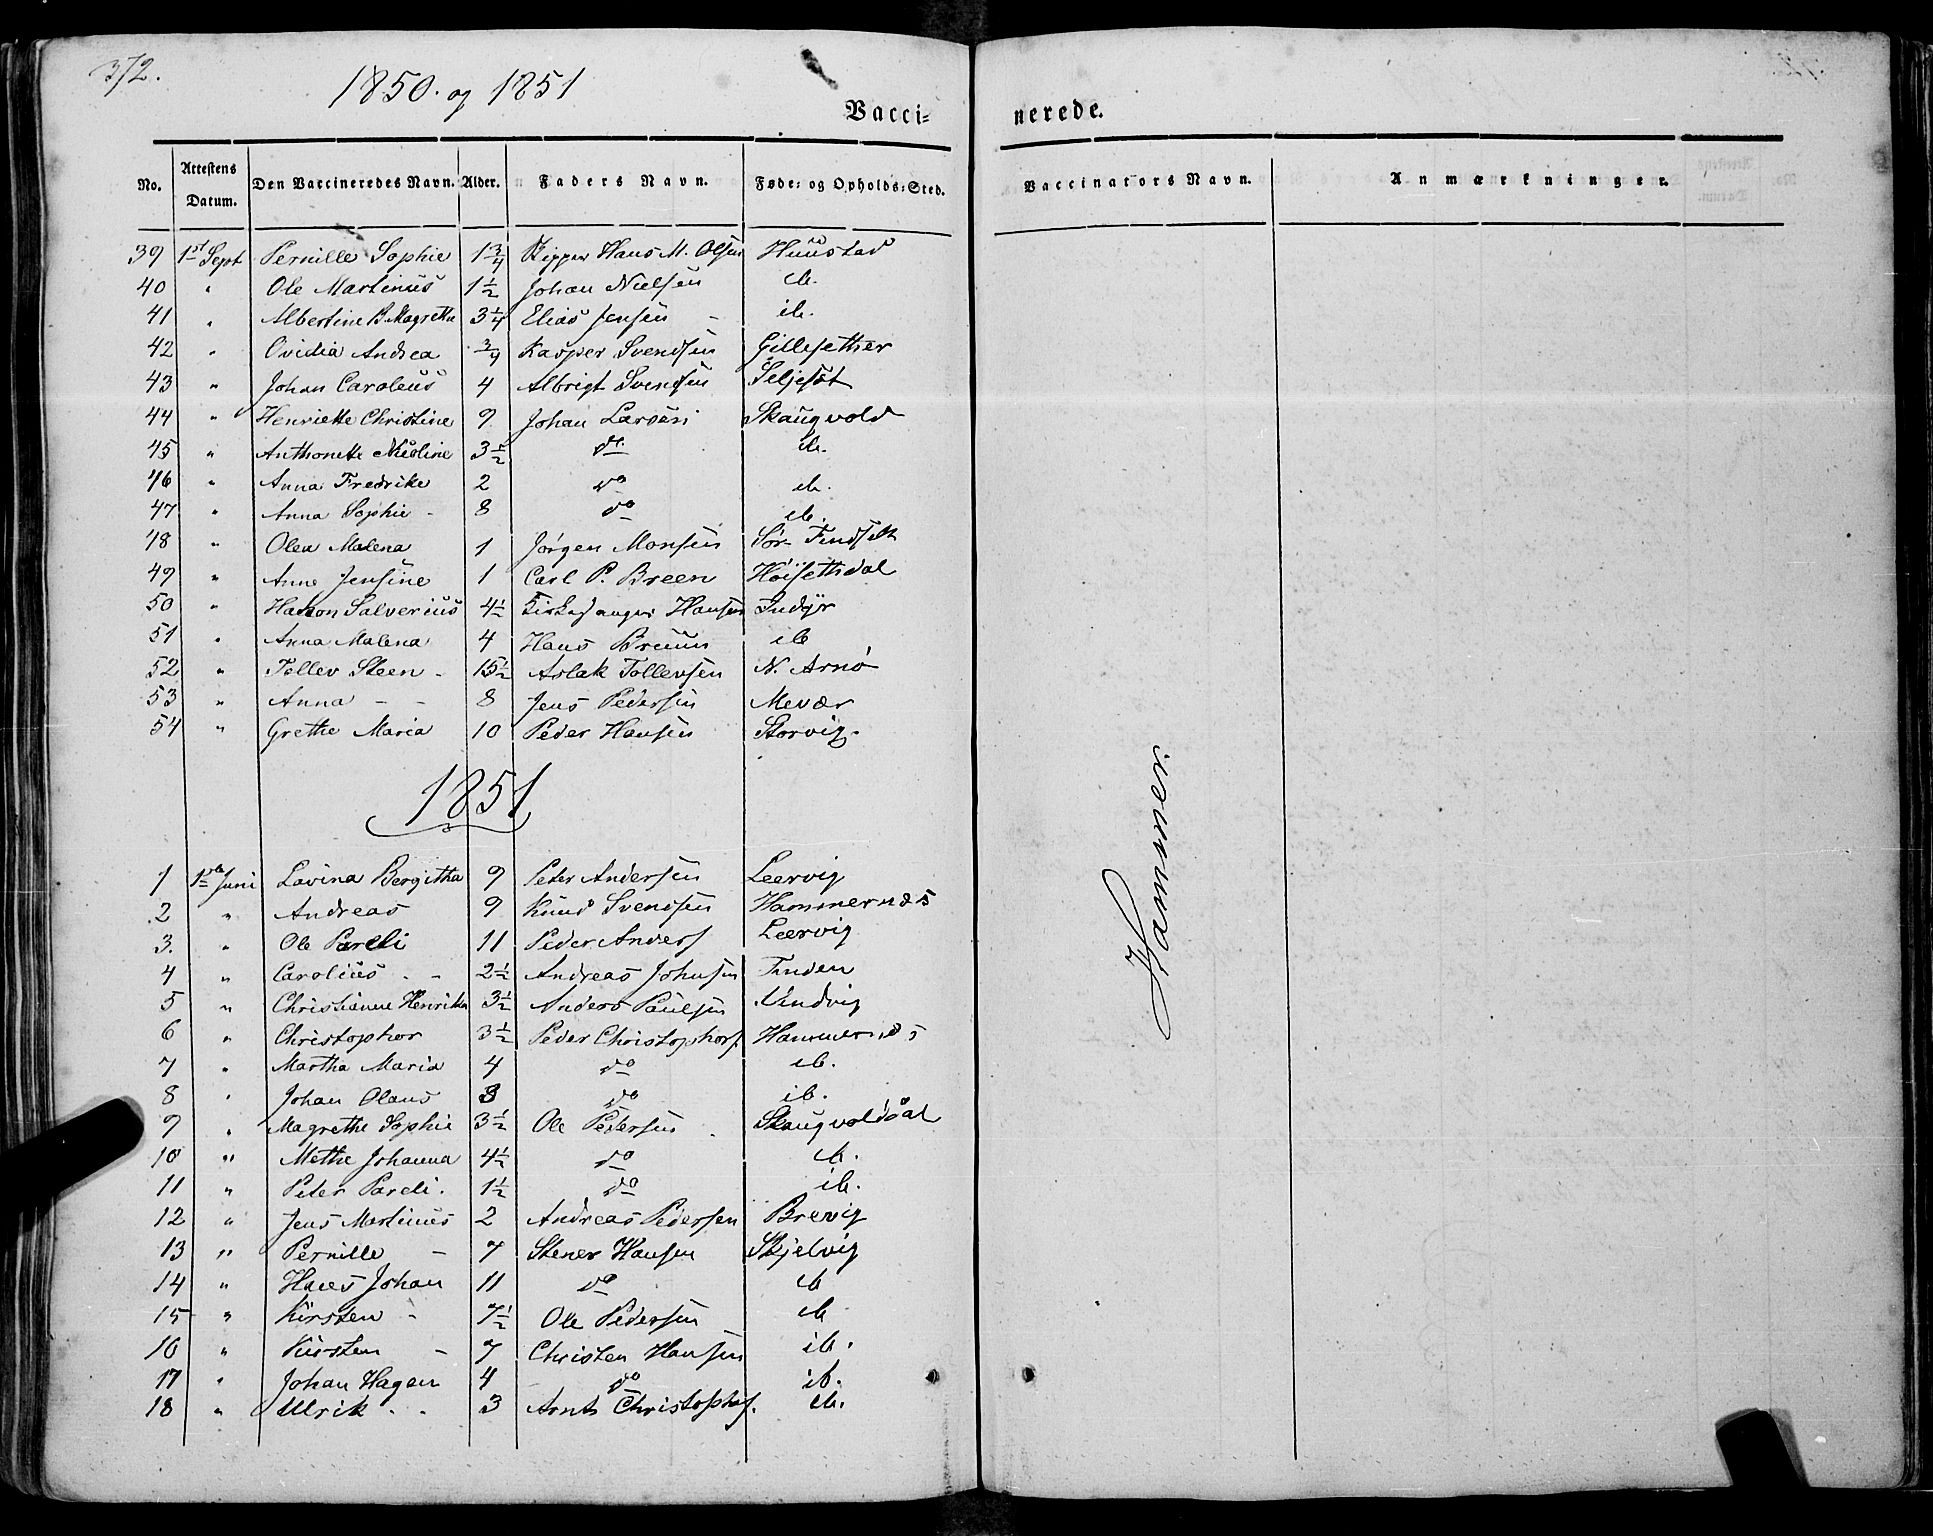 372.
1850. og 1851
Vacci= nerede.
No. Attestens Datum. Den Vaccineredes Navn. Alder. Faders Navn. Føde= og Opholds=Sted. Vaccinators Navn. Anmærkninger.
39 1st Sept Pernille Sophie 1 3/4 Hans M. Olsen Huustad
40 " Ole Martinus 1 1/2 Johan Nielsen ib.
41 " Albertine B. Magrethe 3 1/4 Elias Jensen - ib.
42 " Ovidia Andrea 3/4 Kasper Svendsen Gillesether
43 " Johan Carolius 4 Albrigt Svendsen Seljesøt
44 " Henriette Christine 9 Johan Larsen Skaugvold
45 " Anthonette Nicoline 3 1/2 do ib.
46 " Anna Fredrike 2 do ib.
47 " Anna Sophie - 8 do ib.
48 " Olea Malena 1 Jørgen Monsen Sør-
49 " Anne Jensine 1 Carl P. Breen Høisethdal
50 " Salverius 4 1/2 Kirkesanger Hansen Indyr
51 " Anna Malena 4 Hans Bruun ib
52 " Tollev Steen - 15 1/2 Aslak Tollevsen N. Arnø
53 " Anna - - 8 Jens Pedersen Mevær
54 " Grethe Maria 10 Peder Hansen Storvig.
1851
1 1ste Juni Lavina Bergitha 9 Peter Andersen Leervig
2 " Andreas 9 Knud Svendsen Hammernæs
3. " Ole Pareli 11 Peder Anders Leervig
4 " Carolius - - 2 1/2 Andreas Johnsen Finden
5 " Christianne Henrika 3 1/2 Anders Paulsen Vindvig
6 " Christopher 3 1/2 Peder Christophers. Hammernæs
7 " Martha Maria 4 do ib.
8 " Johan Olaus 3 do ib.
9 " Magrethe Sophie 3 1/2 Ole Pedersen - Skaugvoldsdal
10 " Methe Johanna 4 1/2 do ib.
11 " Peter Pareli. 1 1/2 do ib.
12 " Jens Martinus 2 Andreas Pedersen Brevig
13 " Pernille - 7 Stener Hansen Skjelvig
14 " Hans Johan 11 do ib
15 " Kirsten - 7 1/2 Ole Pedersen ib
16 " Kirsten - 7 Christen Hansen ib.
17 " Johan Hagen 4 do ib.
18 " Ulrik - - 3 Arnts Christophs. ib.
Hammer.